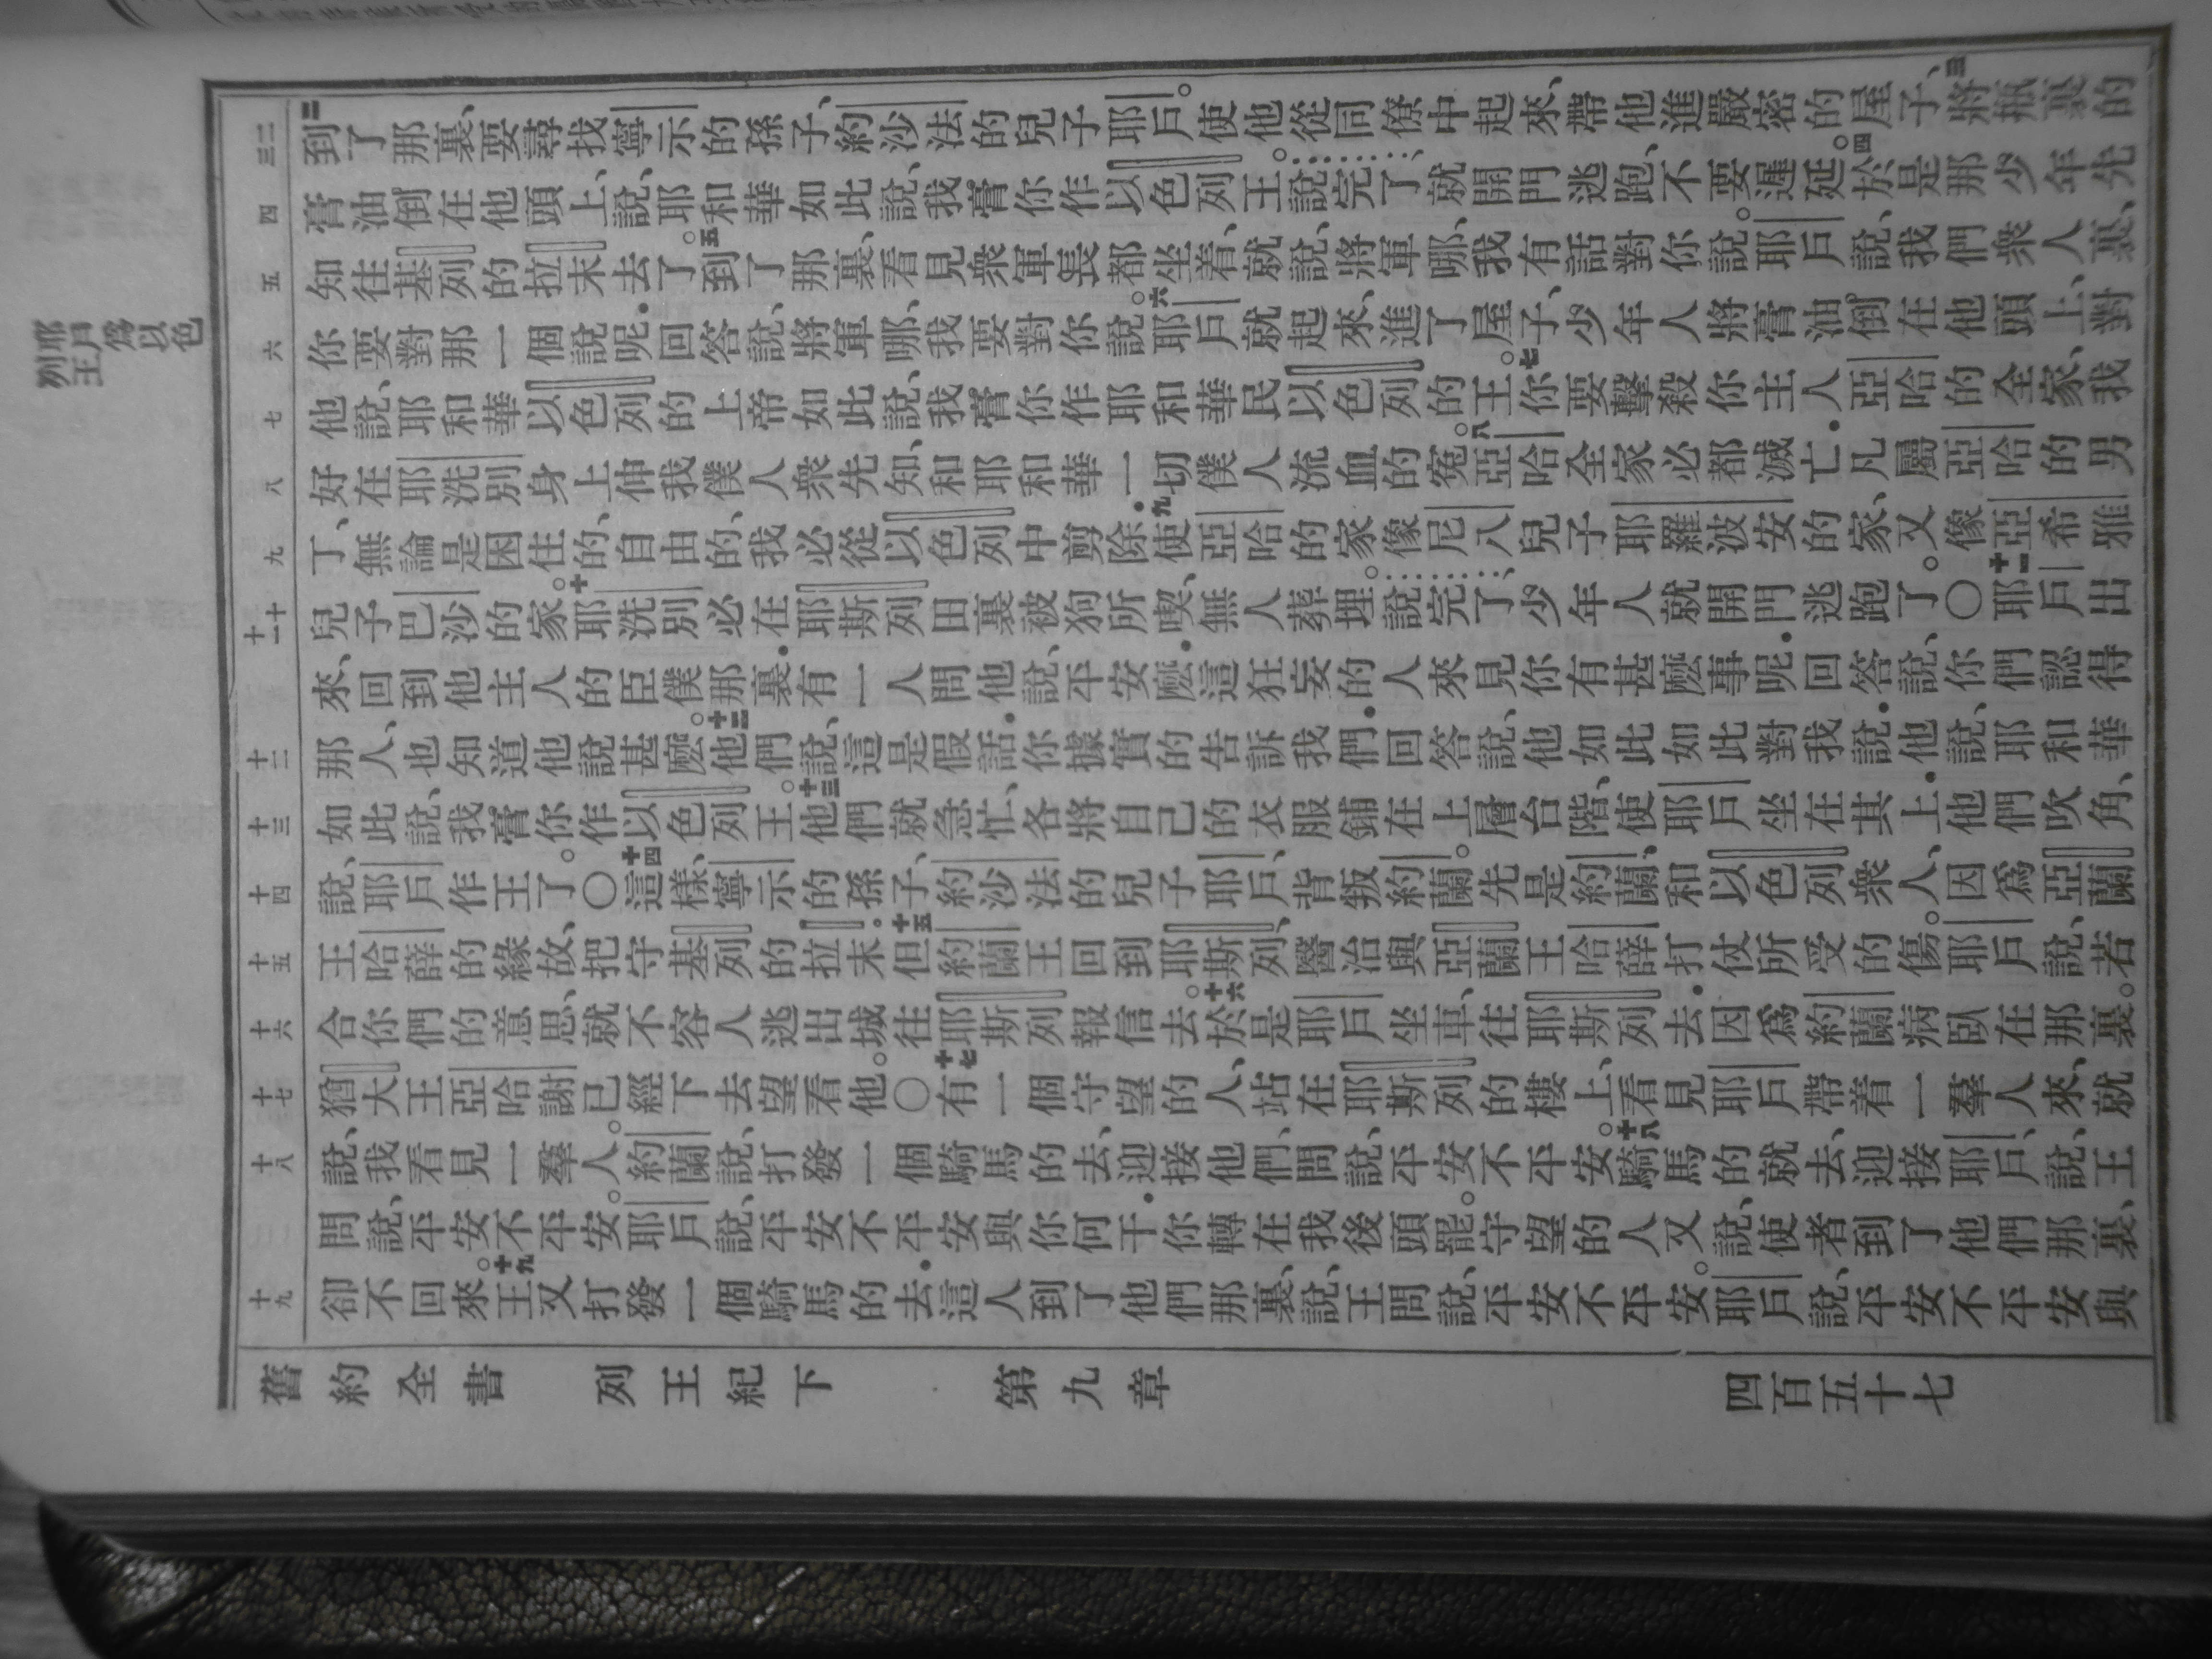 列王紀下
第九章
四百五十七
舊約全書
耶戶爲以色
列王
二三
四
五
六
七
八
九
十十一
十二
十三
十四
十五
十六
十七
十八
十九
二到了那裏、要尋找寧示的孫子、約沙法的兒子耶戶。使他從同僚中起來、帶他進嚴密的屋子、三將瓶裏的
膏油倒在他頭上、說、耶和華如此說、我膏你作以色列王。說完了、就開門逃跑、不要遲延。四於是那少年先
知往基列的拉末去了。五到了那裏、看見衆軍長都坐着、就說、將軍哪、我有話對你說。耶戶說、我們衆人裏、
你要對那一個說呢．回答說、將軍哪、我要對你說。六耶戶就起來、進了屋子、少年人將膏油倒在他頭上、對
他說、耶和華以色列的上帝如此說、我膏你作耶和華民以色列的王。七你要擊殺你主人亞哈的全家、我
好在耶洗別身上伸我僕人衆先知、和耶和華一切僕人流血的寃。八亞哈全家必都滅亡．凡屬亞哈的男
丁、無論是困住的、自由的、我必從以色列中剪除．九使亞哈的家像尼八兒子耶羅波安的家、又像亞希雅
兒子巴沙的家。十耶洗別必在耶斯列田裏被狗所喫、無人葬埋。說完了、少年人就開門逃跑了。〇十一耶戶出
來、回到他主人的臣僕那裏．有一人問他說、平安麼．這狂妄的人來見你有甚麼事呢．回答說、你們認得
那人、也知道他說甚麼。十二他們說、這是假話．你據實的告訴我們．回答說、他如此如此對我說．他說、耶和華
如此說、我膏你作以色列王。十三他們就急忙、各將自己的衣服鋪在上層台階、使耶戶坐在其上．他們吹角、
說、耶戶作王了。〇十四這樣、寧示的孫子、約沙法的兒子耶戶、背叛約蘭。先是約蘭、和以色列衆人、因爲亞蘭
王哈薛的緣故、把守基列的拉末．十五但約蘭王回到耶斯列、醫治與亞蘭王哈薛打仗所受的傷。耶戶說、若
合你們的意思、就不容人逃出城往耶斯列報信去。十六於是耶戶坐車、往耶斯列去．因爲約蘭病臥在那裏。
猶大王亞哈謝已經下去望看他。〇十七有一個守望的人、站在耶斯列的樓上、看見耶戶帶着一羣人來、就
說、我看見一羣人。約蘭說、打發一個騎馬的去、迎接他們、問說、平安不平安。十八騎馬的就去、迎接耶戶、說、王
問說、平安不平安。耶戶說、平安不平安與你何干．你轉在我後頭罷。守望的人又說、使者到了他們那裏、
卻不回來。十九王又打發一個騎馬的去．這人到了他們那裏、說、王問說、平安不平安。耶戶說、平安不平安與